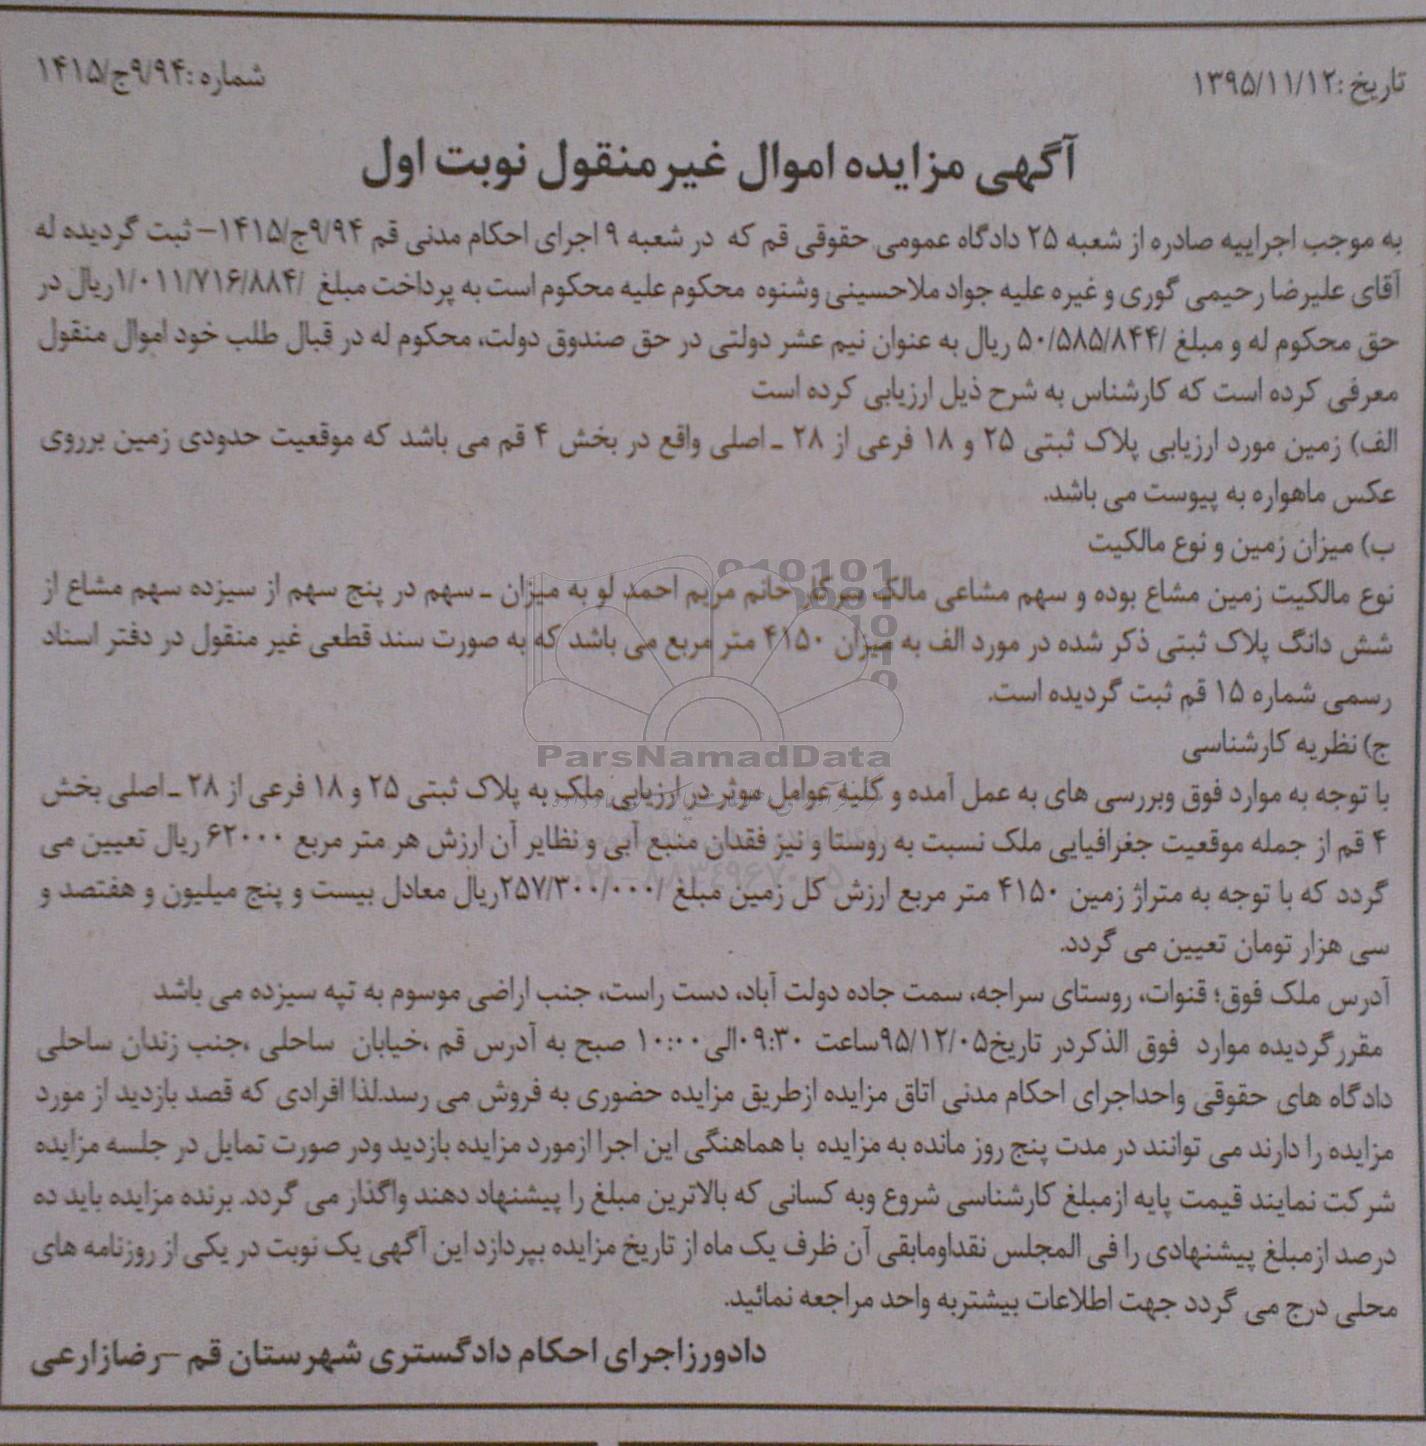 تاریخ :۱۳۹۵/۱۱/۱۲
شماره :۹/۹۴ج/۱۴۱۵
آگهی مزایده اموال غیرمنقول نوبت اول
به موجب اجراییه صادره از شعبه ۲۵ دادگاه عمومی حقوقی قم که در شعبه ۹ اجرای احکام مدنی قم ۹/۹۴ج/۱۴۱۵– ثبت گردیده له
آقای علیرضا رحیمی گوری و غیره علیه جواد ملاحسینی وشنوه محکوم علیه محکوم است به پرداخت مبلغ /۱/۰۱۱/۷۱۶/۸۸۴ریال در
حق محکوم له و مبلغ /۵۰/۵۸۵/۸۴۴ ریال به عنوان نیم عشر دولتی در حق صندوق دولت، محکوم له در قبال طلب خود اموال منقول
معرفی کرده است که کارشناس به شرح ذیل ارزیابی کرده است
الف) زمین مورد ارزیابی پلاک ثبتی ۲۵ و ۱۸ فرعی از ۲۸ ـ اصلی واقع در بخش ۴ قم می باشد که موقعیت حدودی زمین برروی
عکس ماهواره به پیوست می باشد.
ب) میزان زمین و نوع مالکیت
نوع مالکیت زمین مشاع بوده و سهم مشاعی مالک سرکار خانم مریم احمد لو به میزان ـ سهم در پنج سهم از سیزده سهم مشاع از
شش دانگ پلاک ثبتی ذکر شده در مورد الف به میزان ۴۱۵۰ متر مربع می باشد که به صورت سند قطعی غیر منقول در دفتر اسناد
رسمی شماره ۱۵ قم ثبت گردیده است.
ج) نظریه کارشناسی
با توجه به موارد فوق وبررسی های به عمل آمده و کلیه عوامل موثر در ارزیابی ملک به پلاک ثبتی ۲۵ و ۱۸ فرعی از ۲۸ ـ اصلی بخش
۴ قم از جمله موقعیت جغرافیایی ملک نسبت به روستا و نیز فقدان منبع آبی و نظایر آن ارزش هر متر مربع ۶۲۰۰۰ ریال تعیین می
گردد که با توجه به متراژ زمین ۴۱۵۰ متر مربع ارزش کل زمین مبلغ /۲۵۷/۳۰۰/۰۰۰ریال معادل بیست و پنج میلیون و هفتصد و
سی هزار تومان تعیین می گردد.
آدرس ملک فوق؛ قنوات، روستای سراجه، سمت جاده دولت آباد، دست راست، جنب اراضی موسوم به تپه سیزده می باشد
مقررگردیده موارد فوق الذکردر تاریخ۹۵/۱۲/۰۵ساعت ۰۹:۳۰الی۱۰:۰۰ صبح به آدرس قم ،خیابان ساحلی ،جنب زندان ساحلی
دادگاه های حقوقی واحداجرای احکام مدنی اتاق مزایده ازطریق مزایده حضوری به فروش می رسد.لذا افرادی که قصد بازدید از مورد
مزایده را دارند می توانند در مدت پنج روز مانده به مزایده با هماهنگی این اجرا ازمورد مزایده بازدید ودر صورت تمایل در جلسه مزایده
شرکت نمایند قیمت پایه ازمبلغ کارشناسی شروع وبه کسانی که بالاترین مبلغ را پیشنهاد دهند واگذار می گردد. برنده مزایده باید ده
درصد ازمبلغ پیشنهادی را فی المجلس نقداومابقی آن ظرف یک ماه از تاریخ مزایده بپردازد این آگهی یک نوبت در یکی از روزنامه های
محلی درج می گردد جهت اطلاعات بیشتربه واحد مراجعه نمائید.
دادورزاجرای احکام دادگستری شهرستان قم –رضازارعی
ParsNamadData